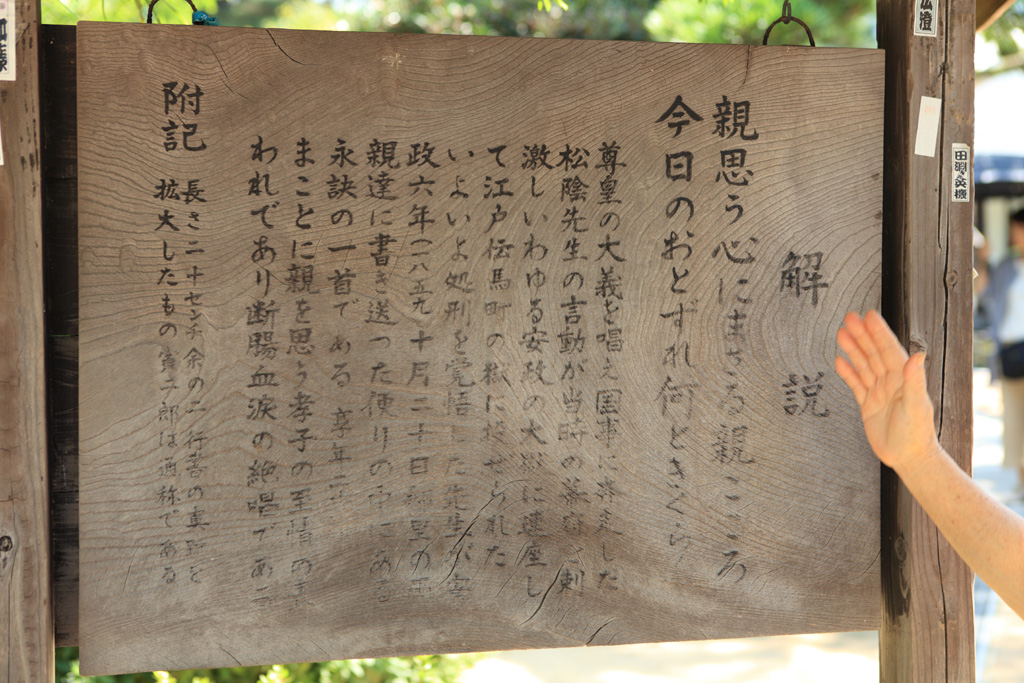 解説
親思う心にまさる親ごころ
今日のおとずれ何ときくら
尊皇の大義を唱え国事に奔走した
松陰先生の言動が当時の幕府
激しいわゆる安政の大獄に連座し
て江戸伝馬町の獄に投ぜられた
いよいよ処刑を覚悟した先生が安
政六年(一八五九)十月二十日郷里の両
親達に書き送った便りの中にある
永訣の一首である 享年三
まことに親を思う孝子の至情の
われであり断腸血涙の絶唱である
附記
長さ二十センチ余の二行書の真蹟を
拡大したもの 寅二郎は通称である
田淵英機